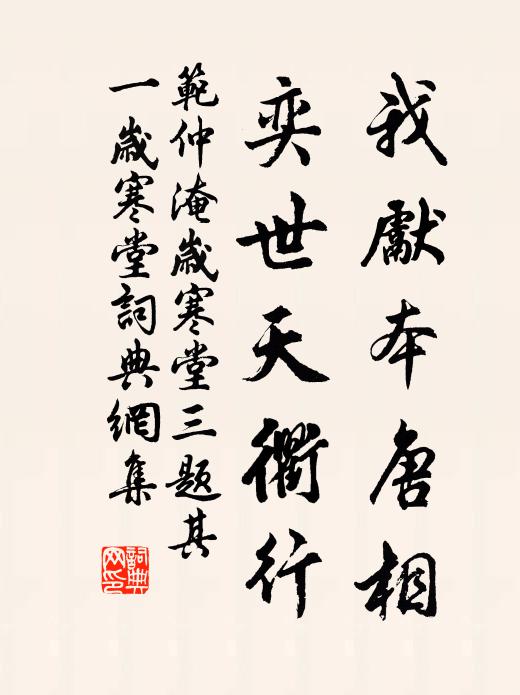 我獻本唐相
奕世天衢行
範仲淹歲寒堂三題其
一歲寒堂詞典網集
詞典
网印